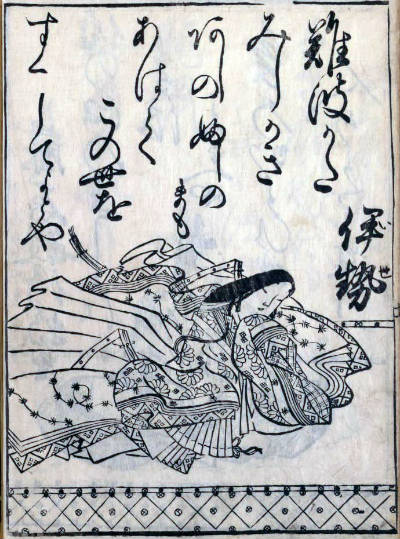 難波かた
みしかき
あしの婦しの
まも
あはて
この世を
すくしてよとや
伊勢